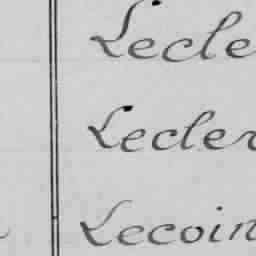 Lecle
Lecler
Lecoin